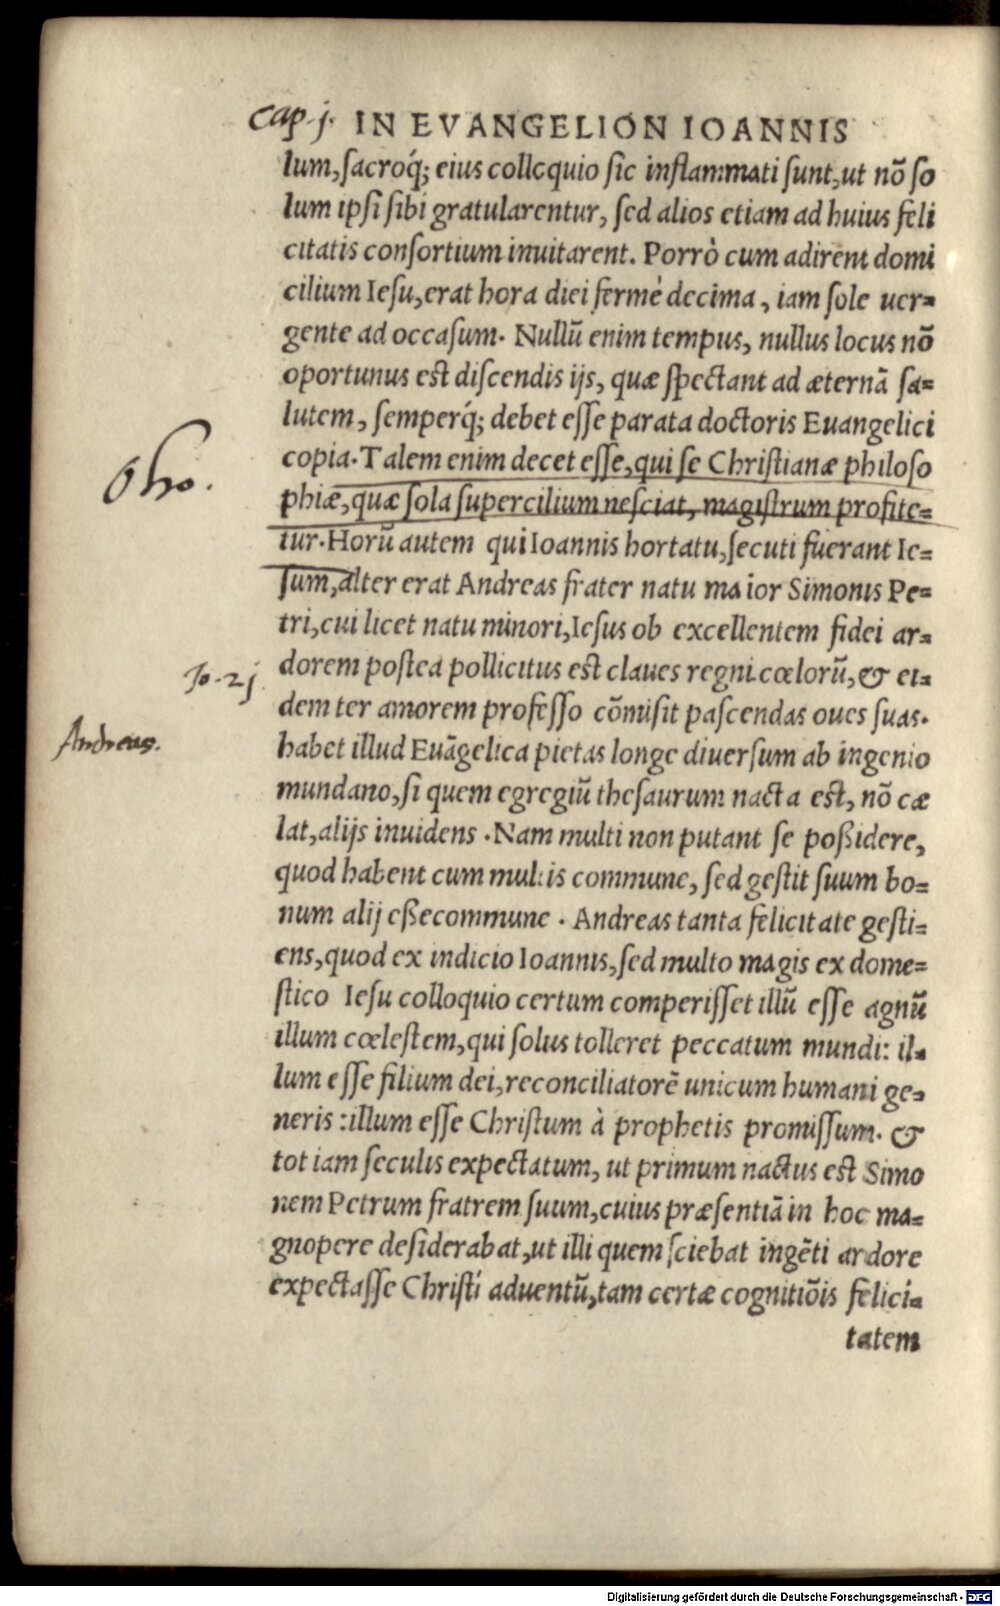 Cap. j. IN EVANGELION IOANNIS
lum, sacroq́; eius colloquio sic inflammati sunt, ut nõ so
lum ipsi sibi gratularentur, sed alios etiam ad huius feli
citatis consortium inuitarent. Porrò cum adirent domi
cilium Iesu, erat hora diei fermè decima, iam sole uer=
gente ad occasum. Nullũ enim tempus, nullus locus nõ
oportunus est discendis ijs, quæ spectant ad æternã sa=
lutem, semperq́; debet esse parata doctoris Euangelici
copia. Talem enim decet esse, qui se Christianæ philoso
phiæ, quæ sola supercilium nesciat, magistrum profite=
tur. Horũ autem qui Ioannis hortatu, secuti fuerant Ie=
sum, alter erat Andreas frater natu maior Simonis Pe=
tri, cui licet natu minori, Iesus ob excellentem fidei ar=
Io. 2j
dorem postea pollicitus est claues regni cœlorũ, & ei=
dem ter amorem professo cõmisit pascendas oues suas.
Andreas.
habet illud Euãgelica pietas longe diuersum ab ingenio
mundano, si quem egregiũ thesaurum nacta est, nõ cæ
lat, alijs inuidens. Nam multi non putant se poßidere,
quod habent cum multis commune, sed gestit suum bo=
num alij eßecommune. Andreas tanta felicitate gesti=
ens, quod ex indicio Ioannis, sed multo magis ex dome=
stico Iesu colloquio certum comperisset illũ esse agnũ
illum cœlestem, qui solus tolleret peccatum mundi: il=
lum esse filium dei, reconciliatorẽ unicum humani ge=
neris: illum esse Christum à prophetis promissum. &
tot iam seculis expectatum, ut primum nactus est Simo
nem Petrum fratrem suum, cuius præsentiã in hoc ma=
gnopere desiderabat, ut illi quem sciebat ingẽti ardore
expectasse Christi aduentũ, tam certæ cognitiõis felici=
tatem
Digitalisierung gefördert durch die Deutsche Forschungsgemeinschaft - DFG